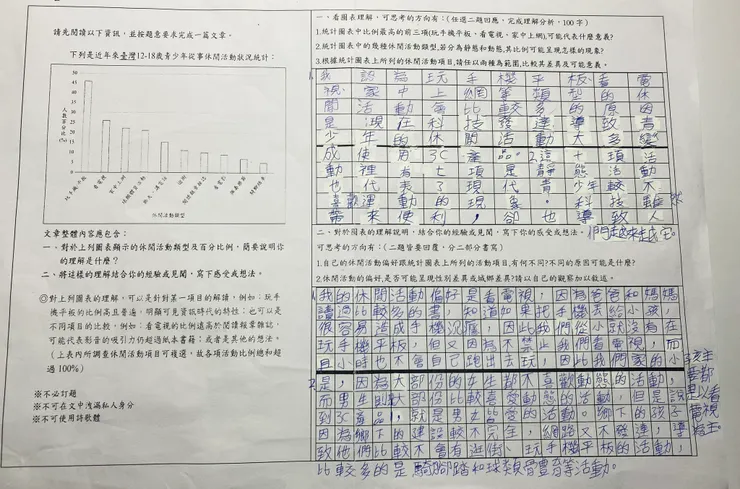 請先閱讀以下資訊,並按題意要求完成一篇文章。
下列是近年來臺灣12-18歲青少年從事休閒活動狀況統計:
人數百分比(%)
50
45
40
35
30
25
20
15
10
5
0
玩手機平板
看電視
家中上網
逛街
看電影
休閒活動類型
文章整體內容應包含:
一、對於上列圖表顯示的休閒活動類型及百分比例,簡要說你
的理解是什麼?
二、將這樣的理解結合你的經驗或見聞,寫下感受或想法。
◎對上列圖表的理解,可以是針對某一項目的解讀,例如:玩手
機平板的比例高且普遍,明顯可見資訊時代的特性;也可以是
不同項目的比較,例如:看電視的比例遠高於閱讀報章雜誌,
可能代表影音的吸引力仍超過紙本書籍;或者是其他的想法。
(上表內所調查休閒活動項目可複選,故各項活動比例總和超
過100%)
※不必訂題
※不可在文中洩漏私人身分
※不可使用詩歌體
一、看圖表理解,可思考的方向有:(任選二題回應,完成理解分析,100字)
1.統計圖表中比例最高的前三項(玩手機平板、看電視、家中上網),可能代表什麼意義?
2.統計圖表中的幾種休閒活動類型,若分為靜態和動態,其比例可能呈現怎樣的現象?
3.根據統計圖表上所列的休閒活動項目,請任以兩種為範圍,比較其差異及可能意義。
1.我認為玩手機平板、看電
視、家中上網等類型的休
閒活動會比較多的原因
是現在科技發達導致青
少年的休閒活動大多變
成使用3C產品。2.這十項活
動裡有七項是靜態活動
也代表了現代青少年較不
喜歡運動的現象。科技雖然
帶來便利,卻也導致人
們越來越宅。
二、對於圖表的理解說明,結合你的經驗或見聞,寫下你的感受或想法。
可思考的方向有:(二題皆要回應,分二部分書寫)
1.自己的休閒活動偏好跟統計圖表上所列的活動項目,有何不同?不同的原因可能是什麼?
2.休閒活動的偏好,是否可能呈現性別差異或城鄉差異?請以自己的觀察加以敘述。
1.我的休閒活動偏好是看電視,因為爸爸和媽媽
讀過比較多的書,知道如果把手機丟給小孩,
很容易造成手機沉癮,因此我們從小就沒有在
玩手機平板,但又因為不禁止我們看電視,而
且小時也不會自己跑出去玩,因此我們家的小孩主
要都是以看電視為主。
2.是,因為大部份的女生都不喜歡動態的活動,
而男生則大部份比較喜愛動態的活動,但是說
到3C產品,就是男女皆愛的活動。鄉下的孩子
因為鄉下的建設較不完全,網路又不發達,導
致他們比較不會有逛街、玩手機平板的活動,
比較多的是騎腳踏和球類體育等活動。